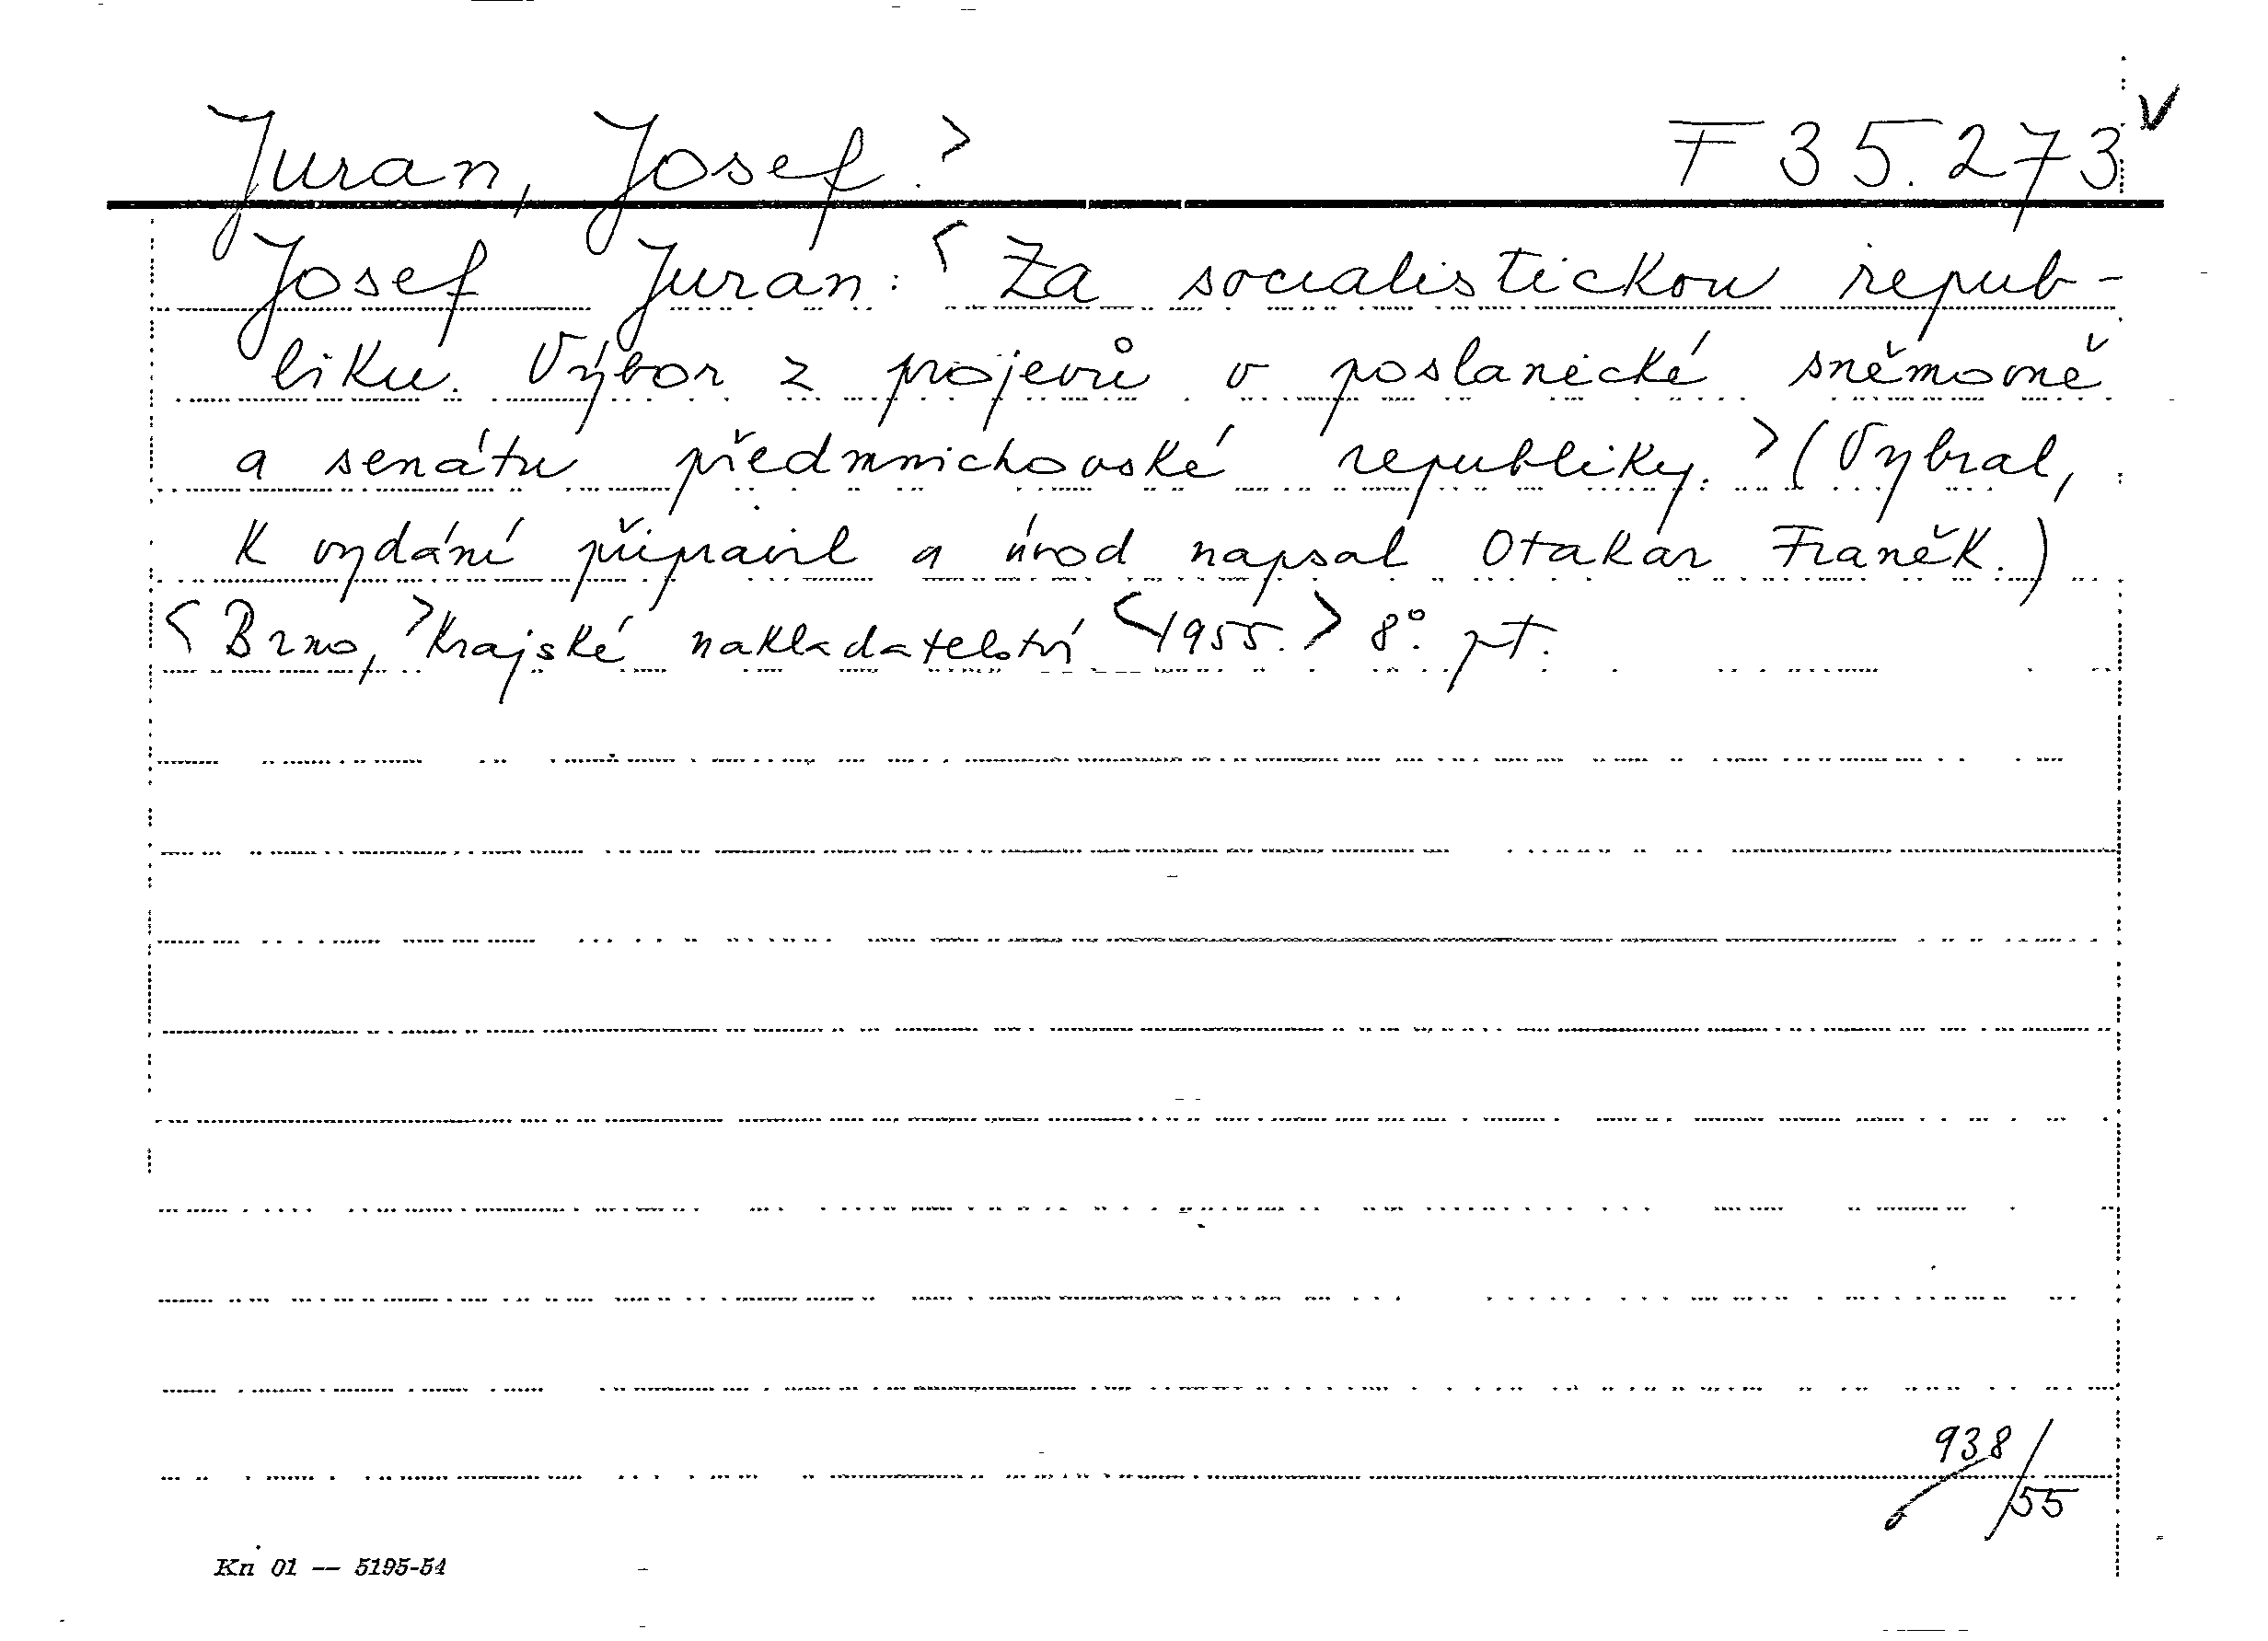 Juran, Josef.> F 35.273 v
Josef Juran: <Za socialistickou repub-
liku. Výbor z projevů v poslanecké sněmovně
a senátu předmnichovské republiky.> (Vybral,
k vydání připravil a úvod napsal Otakar Franěk.)
<Brno,> Krajské nakladatelství <1955.> 8°. pt.
938/55
Kn 01 — 5195-54